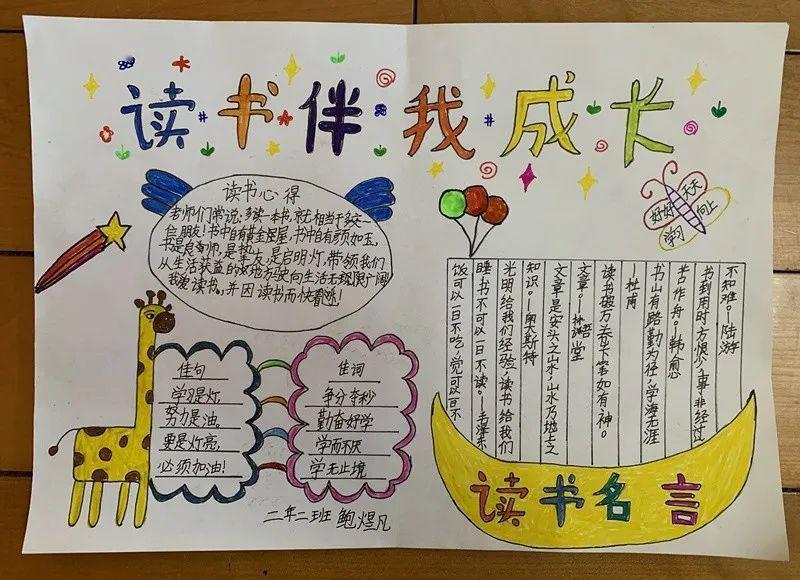 读书伴我成长
读书心得
老师们常说:多读一本书,就相当于多交一
启朋友!书中自有黄金屋屋,书中自有颜如玉,
书是良师,是挚友,是启明灯,带领我们
从生活获益的
驶向生活无限广阔
我爱读书,并因读书而快
佳句
学习是灯,
努力是油。
要是灯亮,
必须加油!
佳词
争分夺秒
勤奋好学
学而不厌
学无止境
二年二班 鲍煜凡
好好
天天
学习
向上
不知难。—陆游
书到用时方恨少,事非经过
苦作舟。—韩愈
书山有路勤为径,学海无涯
—杜甫
读书破万卷,下笔如有神。
文章。—
堂
文章是安头之山水,山水乃地上之
知识。—奥大斯特
光明给我们经验,读书给我们
睡书不可以一日不读。—毛泽东
饭可以一日不吃,觉可以一日不
读书名言